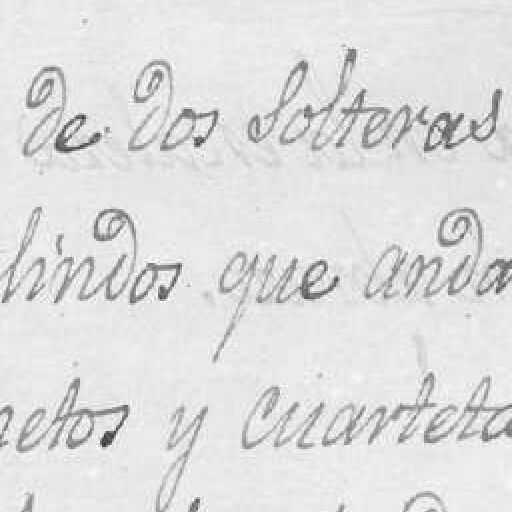 de dos Solteras
lindos que anda
netos y cuarteta